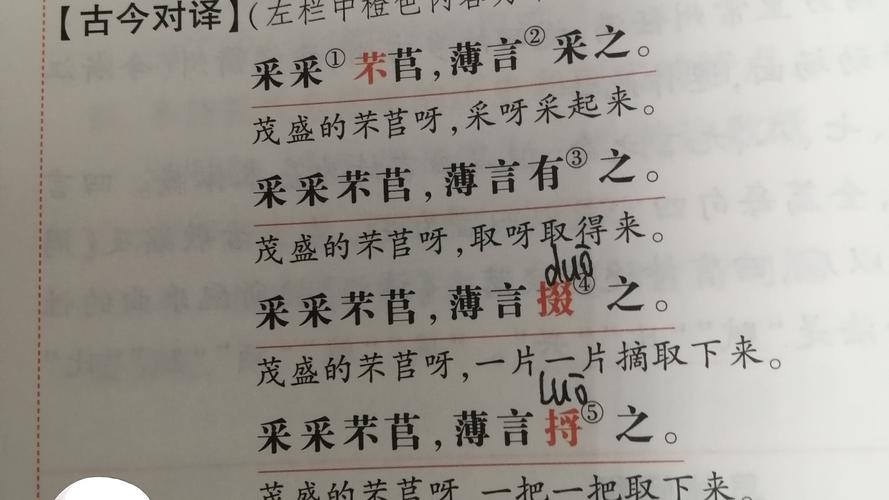 【古今对译】(左栏中橙色内容为
采采①芣苢,薄言②采之。
茂盛的芣苢呀,采呀采起来。
采采芣苢,薄言有③之。
茂盛的芣苢呀,取呀取得来。
duō
采采芣苢,薄言掇④之。
茂盛的芣苢呀,一片一片摘取下来。
luō
采采芣苢,薄言捋⑤之。
茂盛的芣苢呀,一把一把取下来。